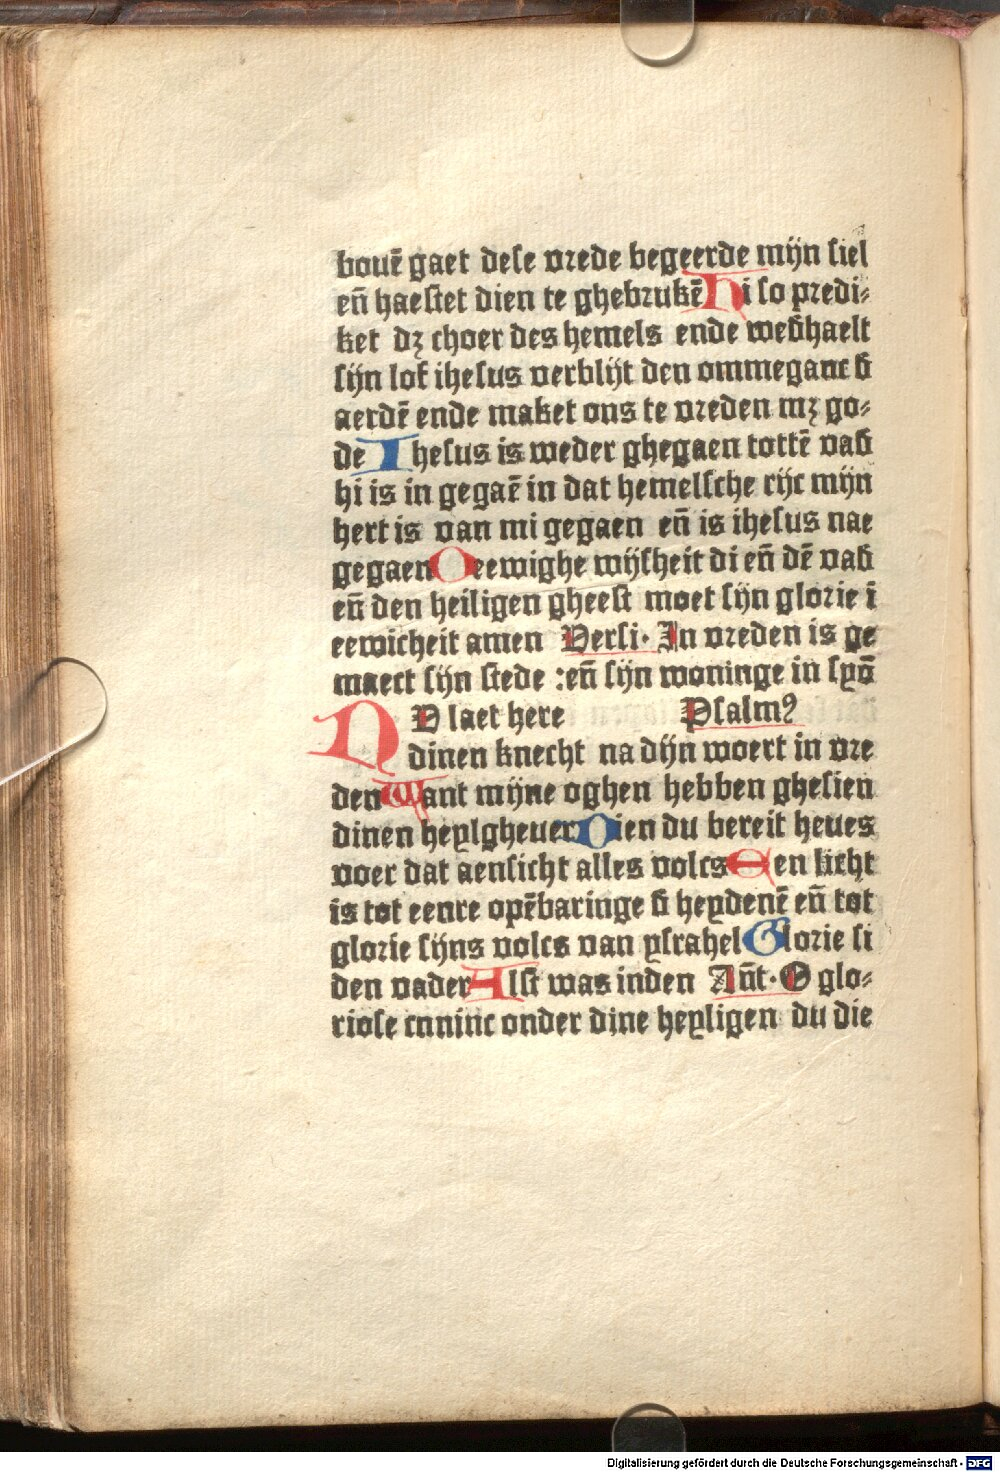 bouē gaet dese vrede begeerde mijn siel
eñ haestet dien te ghebrukē Hi so predi⸗
ket dꝫ choer des hemels ende wed̕haelt
sijn lof ihesus verblijt den ommeganc d̕
aerdē ende maket ons te vreden mꝫ go⸗
de Ihesus is weder ghegaen tottē vad̕
hi is in gegaē in dat hemelsche rijc mijn
hert is van mi gegaen eñ is ihesus nae
gegaen O eewighe wijsheit di eñ dē vad̕
eñ den heiligen gheest moet sijn glorie ī
eewicheit amen Versi. In vreden is ge
maect sijn stede :eñ sijn woninge in syō
NV laet here Psalmꝰ
dinen knecht na dijn woert in vre
den Want mijne oghen hebben ghesien
dinen heylgheuer Dien du bereit heues
voer dat aensicht alles volcs Een licht
is tot eenre opēbaringe d̕ heydenē eñ tot
glorie sijns volcs van ysrahel Glorie si
den vader Alst was inden Añt. O glo⸗
riose cninc onder dine heyligen du die
Digitalisierung gefördert durch die Deutsche Forschungsgemeinschaft - DFG